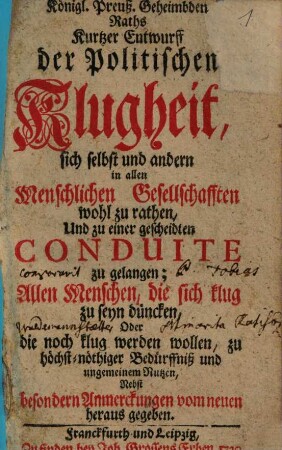 Königl. Preuß. Geheimbden
Raths
Kurtzer Entwurff
der Politischen
Klugheit,
sich selbst und andern
in allen
Menschlichen Gesellschafften
wohl zu rathen,
Und zu einer gescheidten
CONDUITE
zu gelangen;
Allen Menschen, die sich klug
zu seyn düncken,
Oder
die noch klug werden wollen, zu
höchst-nöthiger Bedürffniß und
ungemeinem Nutzen,
Nebst
besondern Anmerckungen vom neuen
heraus gegeben.
Franckfurth und Leipzig,
Zu finden bey Joh. Grossens Erben